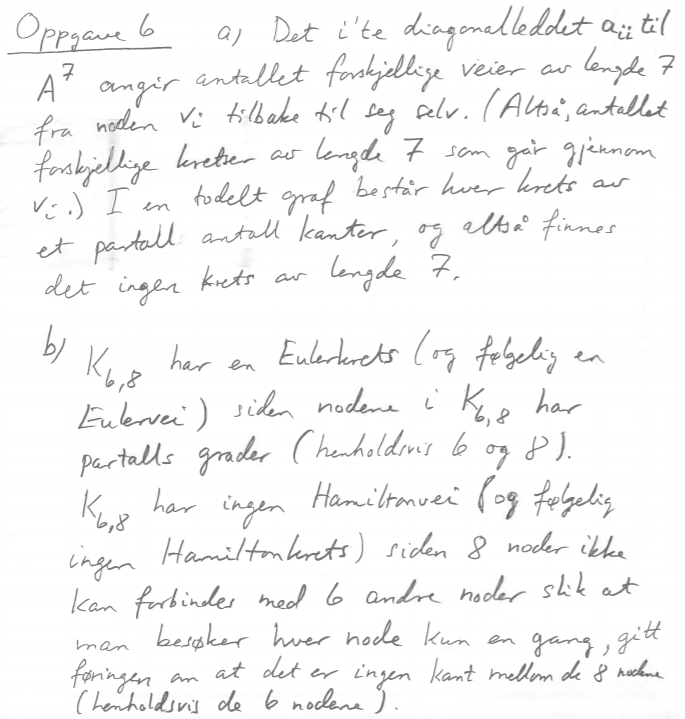 Oppgave 6 a) Det i'te diagonalleddet aii til
A⁷ angir antallet forskjellige veier av lengde 7
fra noden vi tilbake til seg selv. (Altså, antallet
forskjellige kretser av lengde 7 som går gjennom
vi.) I en todelt graf består hver krets av
et partall antall kanter, og altså finnes
det ingen krets av lengde 7.
b) K6,8 har en Eulerkrets (og følgelig en
Eulervei) siden nodene i K6,8 har
partalls grader (henholdsvis 6 og 8).
K6,8 har ingen Hamiltonvei (og følgelig
ingen Hamiltonkrets) siden 8 noder ikke
kan forbindes med 6 andre noder slik at
man besøker hver node kun en gang, gitt
føringen om at det er ingen kant mellom de 8 nodene
(henholdsvis de 6 nodene).